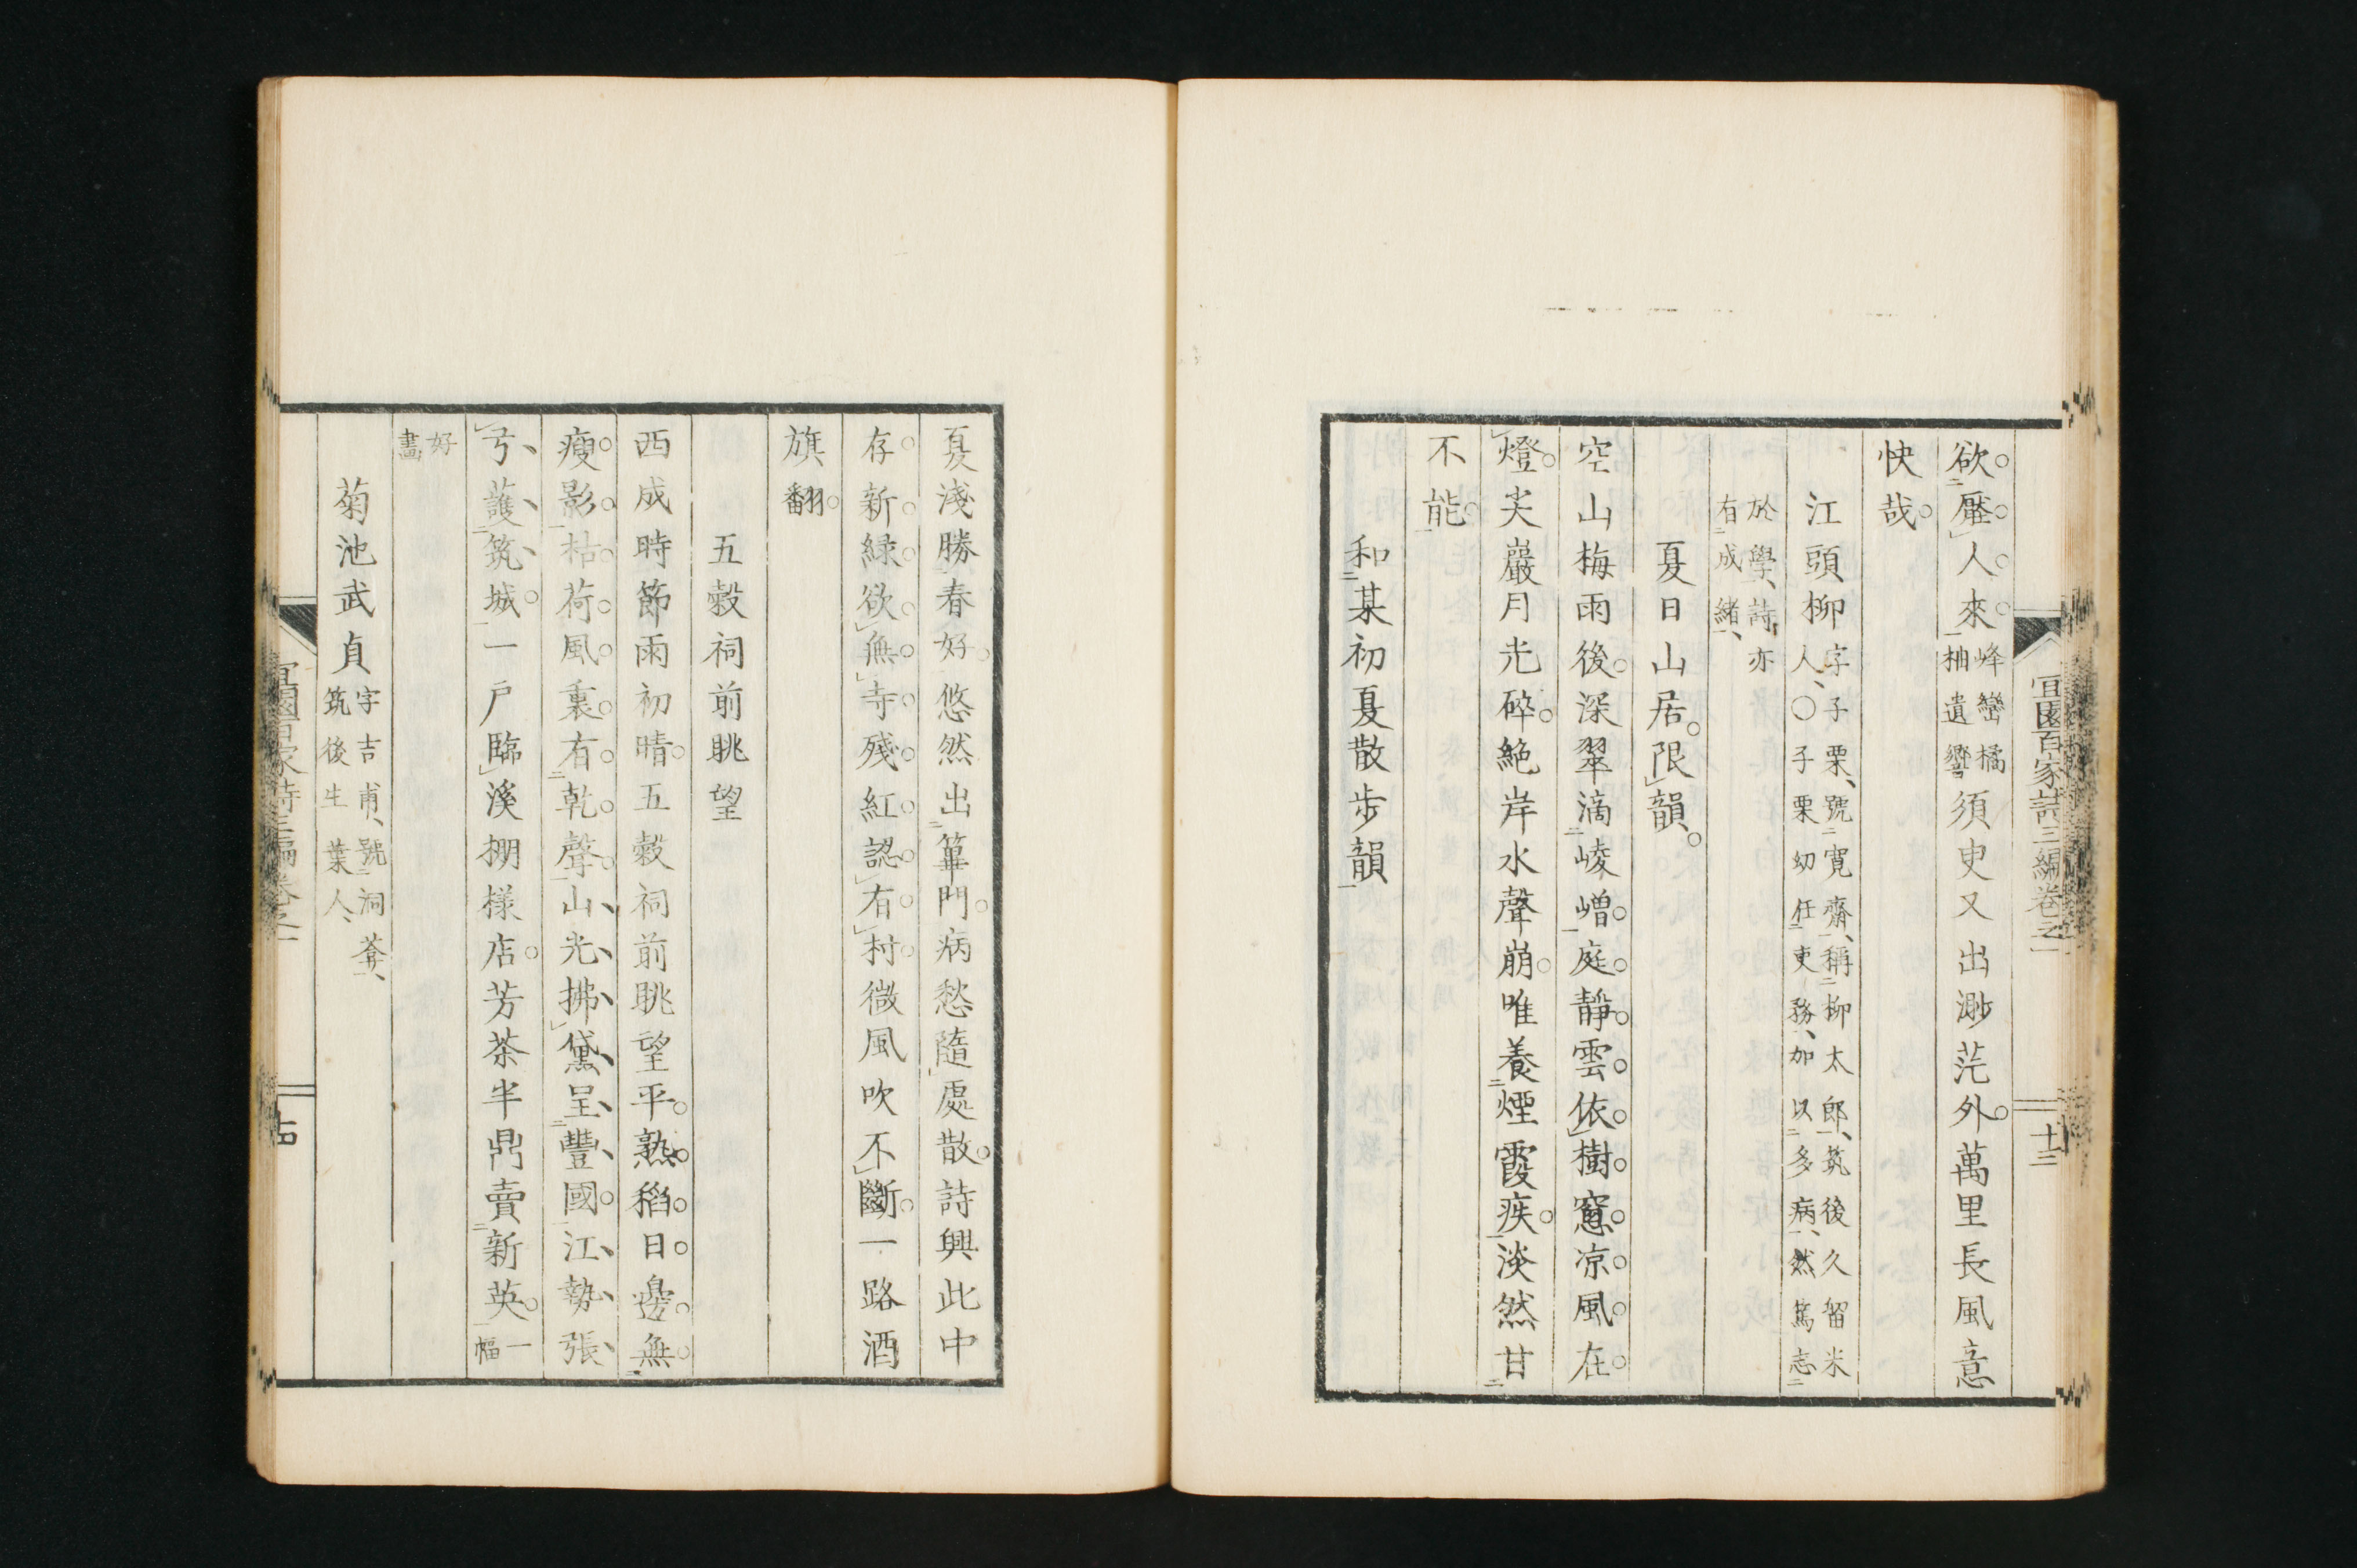 宜園百家詩三編卷之一
十三
欲壓人來峰巒橘柚遺響須臾又出渺茫外萬里長風意
快哉
江頭柳字子栗號寬齋稱柳太郎筑後久留米人○子栗幼任吏務加以多病然篤志
於學詩亦有成緒
夏日山居限韻
空山梅雨後深翠滴崚嶒庭靜雲依樹窻凉風在
燈尖巖月光碎絶岸水聲崩唯養煙霞疾淡然甘
不能
和某初夏散步韻
夏淺勝春好悠然出篳門病愁隨處散詩興此中
存新綠欲無寺殘紅認有村微風吹不斷一路酒
旗翻
五穀祠前眺望
西成時節雨初晴五穀祠前眺望平熟稻日邊無
瘦影枯荷風裏有乾聲山光拂黛呈豐國江勢張
弓護筑城一戶臨溪棚樣店芳茶半鼎賣新英一幅
好畫
菊池武貞字吉甫號洞菴筑後生葉人
宜園百家詩三編卷之一
十四